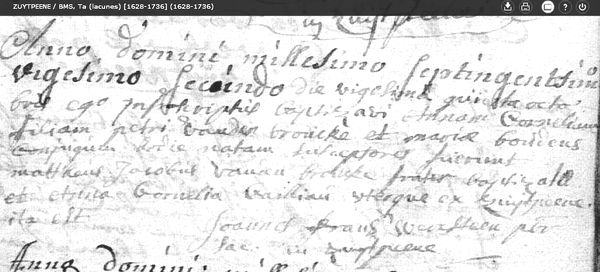 ZUYTPEENE / BMS, Ta (lacunes) [1628-1736] (1628-1736)
Anno domini millesimo septingentesimo
vigesimo secundo die vigesima quinta octo
bris ego infrascriptus baptizavi Annam Corneliam
filiam petri vander broucke et mariæ
conjugum hodie natam susceptores fuerunt
mattheus Jacobus vanden broucke frater baptizatæ
et Anna Cornelia uterque ex Zuytpeene
ita est
Joannes frans
in Zuytpeene
Anno domini